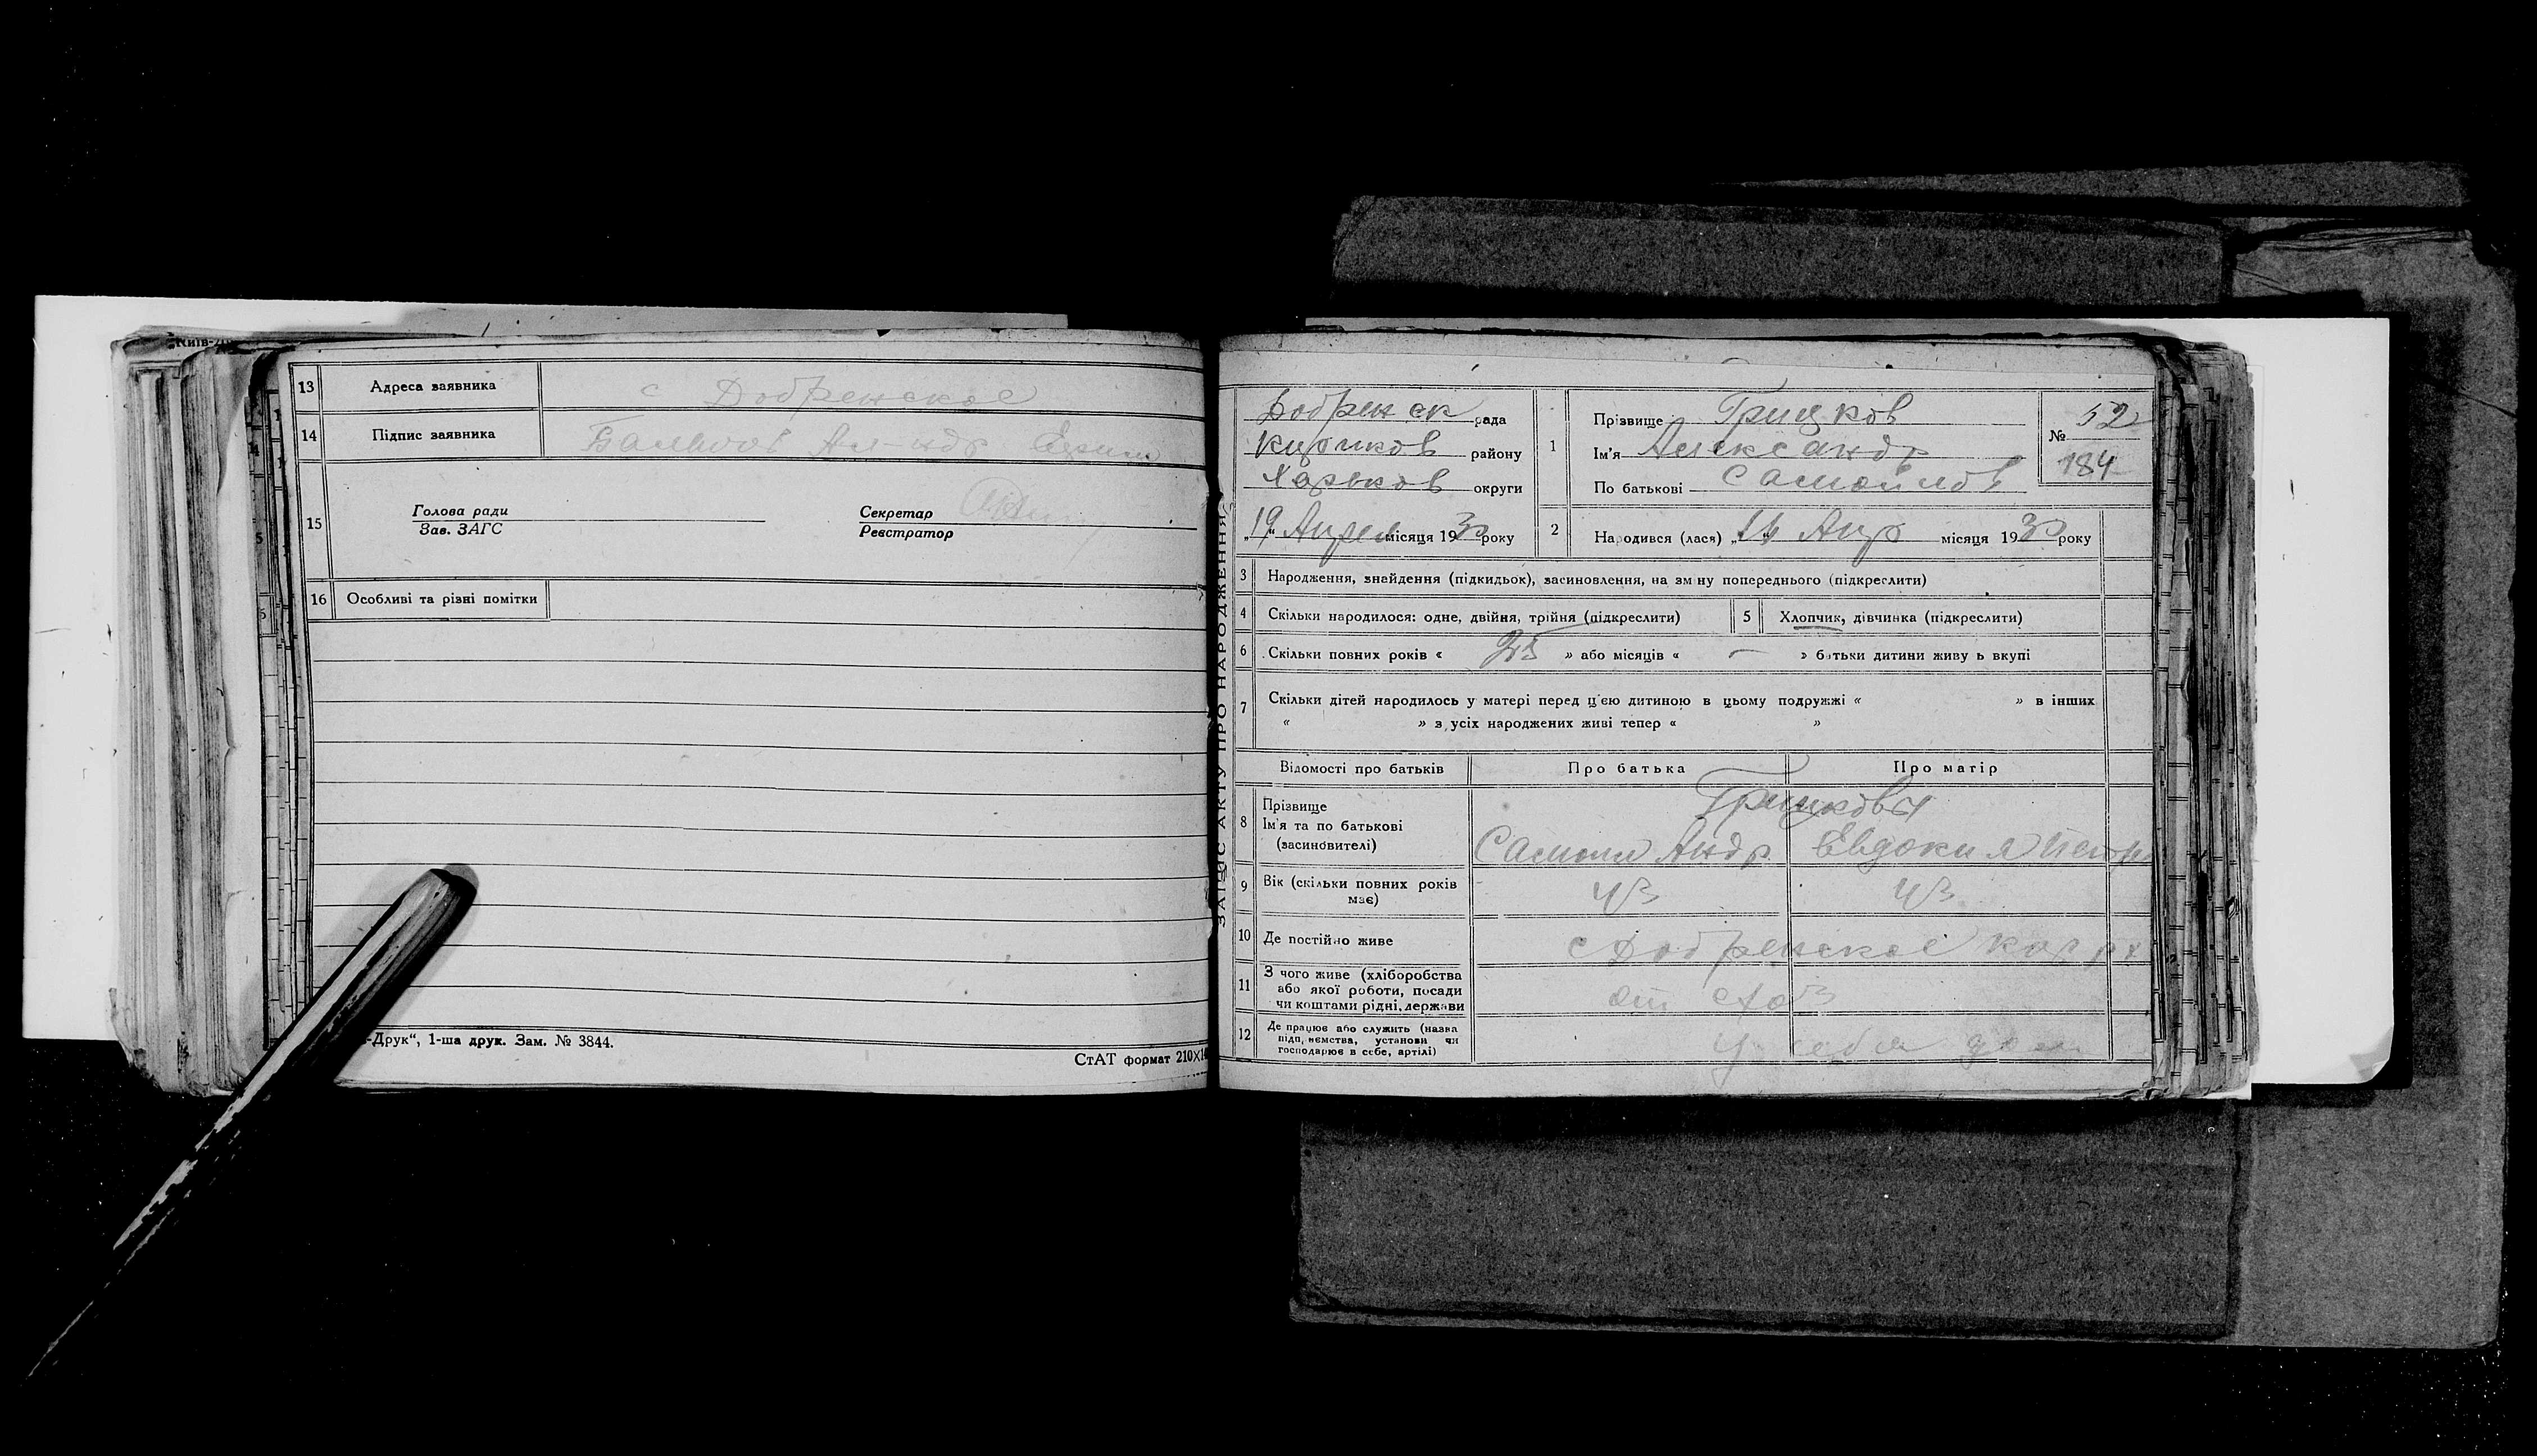 Київ-Д
13 Адреса заявника с Добренское
14 Підпис заявника
15 Голова ради Секретар
Зав. ЗАГС Реєстратор
16 Особливі та різні помітки
-Друк“, 1-ша друк. Зам. № 3844.
СтАТ формат 210×1
ЗАПИС АКТУ ПРО НАРОДЖЕННЯ
Добренск рада
району
Харьков округи
„19“ Апрел місяця 1930 року
1 Прізвище Грицков
Ім'я Александр
По батькові Самойлов
№ 52
184
2 Народився (лася) Апр місяця 1930 року
3 Народження, знайдення (підкидьок), засиновлення, на зміну попереднього (підкреслити)
4 Скільки народилося: одне, двійня, трійня (підкреслити) 5 Хлопчик, дівчинка (підкреслити)
6 Скільки повних років « 25 » або місяців « — » батьки дитини живуть вкупі
7 Скільки дітей народилось у матері перед ц'єю дитиною в цьому подружжі « » в інших
« » з усіх народжених живі тепер « »
Відомості про батьків Про батька Про матір
8 Прізвище Грицковы
Ім'я та по батькові
(засиновителі) Самоил Андр Евдокия Петр
9 Вік (скільки повних років має) 43 43
10 Де постійно живе с Добренское
11 З чого живе (хліборобства
або якої роботи, посади
чи коштами рідні, держави от схоз
12 Де працює або служить (назва
підприємства, установи чи
господарює в себе, артілі) у себя дом